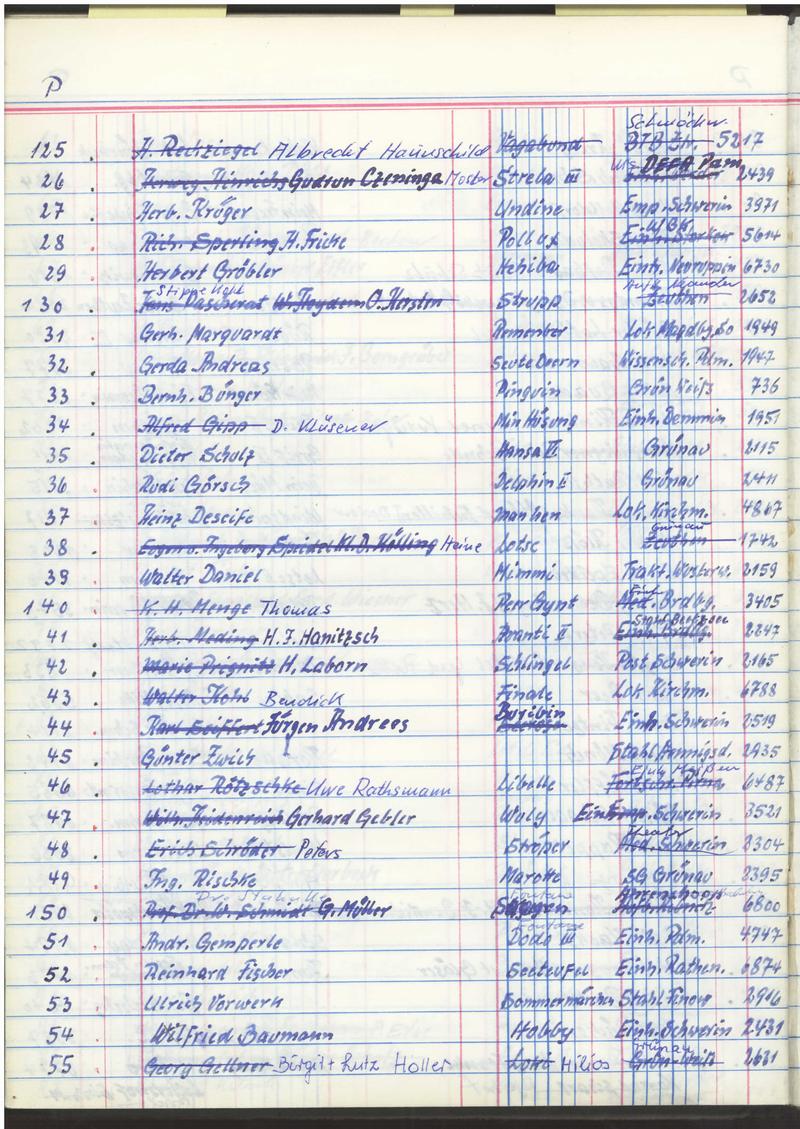 P
Schmöckw.
125 . H. Rechziegel Albrecht Haunschild Vagabund 5217
26 . Herwig Hinrichs Gudrun Czeninga Strela III 2439
27 . Herb. Krüger Undine Emp. Schwerin 3971
28 . Rich. Sperling H. Fricke Pollux 5614
29 . Herbert Gröbler Hehiba Einh. Neuruppin 6730
130 . Jens Pascherat O. Kersten Strupp Zeuthen 2652
31 . Gerh. Marquardt Remember Lok Magdbg. So 1949
32 . Gerda Andreas Seute Deern Wissensch. Pdm. 1947
33 . Bernh. Bünger Pinguin Grün Weiß 736
34 . Alfred Gipp D. Klüsener Min Hüsung Einh. Demmin 1951
35 . Dieter Schulz Hansa VI Grünau 2115
36 . Rudi Görsch Delphin II Grünau 2411
37 . Heinz Desceife Lok. Kirchm. 4867
Grünau
38 . Eugen u. Ingeborg Kl. D. Hölling Heine Lotse Zeuthen 1742
39 . Walter Daniel Mimmi Trakt. Wusterw. 2159
140 . K. H. Menge Thomas Peer Gynt Brdbg. 3405
41 . Herb. Meding H. J. Hanitzsch Avanti II Einh. Brdbg. 2247
42 . Marie Prignitz H. Laborn Schlingel Post Schwerin 2165
43 . Walter Kohl Bendick Finale Lok Kirchm. 6788
44 . Karl Seiffert Jürgen Andrees Buribin Einh. Schwerin 2519
45 . Günter Zwich Stahl Hennigsd. 2935
46 . Lothar Rötzschke Uwe Rathsmann Libelle Fortsch. Pirna 6487
47 . Wilh. Heidenreich Gerhard Gebler Woly Einh. Emp. Schwerin 3521
Theater
48 . Erich Schröder Peters Ströper Med. Schwerin 2304
49 . Ing. Rischke Marotte SG Grünau 2395
Ahrenshoop
150 . Prof. Dr. W. Schmidt G. Müller 6800
51 . Andr. Gemperle Dodo III Einh. Pdm. 4747
52 . Reinhard Fischer Seeteufel Einh. Rathen. 6874
53 . Ulrich Vorwerk Sommermärchen Stahl Finow 2916
54 . Wilfried Baumann Hobby Einh. Schwerin 2431
Grünau
55 . Georg Gellner Birgit + Lutz Holler Loki Hilios Grün Weiß 2631